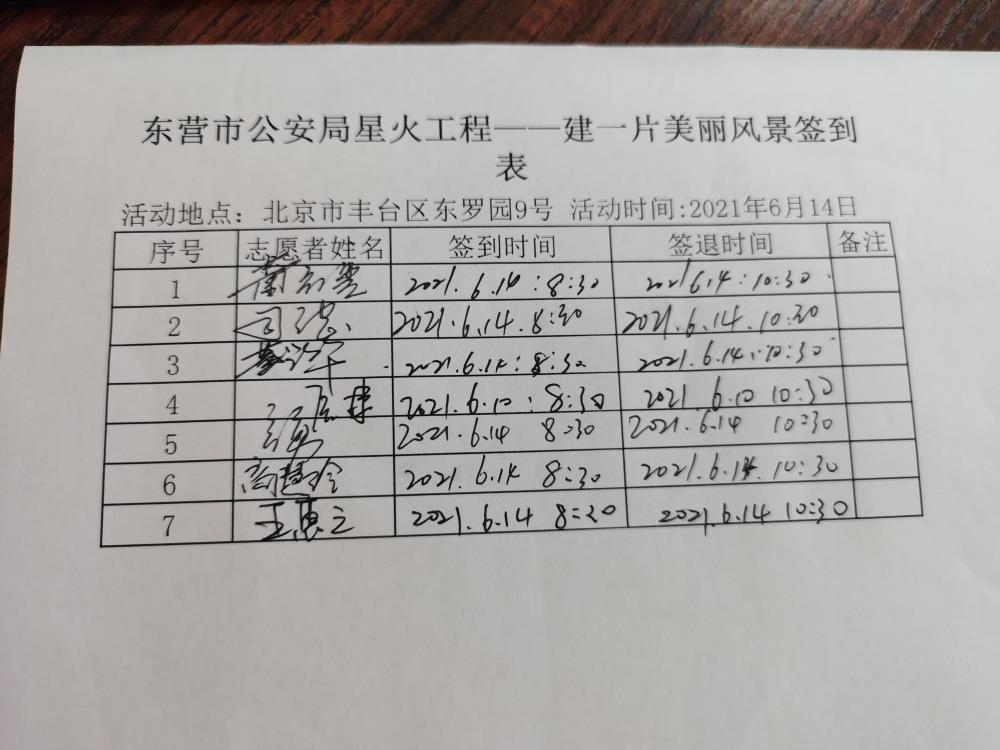 东营市公安局星火工程——建一片美丽风景签到
表
活动地点：北京市丰台区东罗园9号 活动时间:2021年6月14日
序号 志愿者姓名 签到时间 签退时间 备注
1 2021.6.14:8:30 2021.6.4:10:30
2 2021.6.14.8:30 2021.6.14.10:30
3 2021.6.14:8:30 2021.6.14:10:30
4 2021.6.10:8:30 2021.6.10 10:30
5 2021.6.14 8:30 2021.6.14 10:30
6 2021.6.14 8:30 2021.6.14.10:30
7 王惠立 2021.6.14 8:30 2021.6.14 10:30